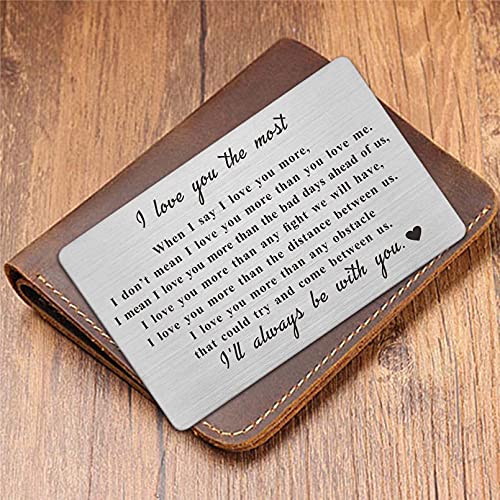 I love you the most
When I say I love you more,
I don't mean I love you more than you love me.
I mean I love you more than the bad days ahead of us,
I love you more than any fight we will have,
I love you more than the distance between us.
I love you more than any obstacle
that could try and come between us.
I'll always be with you.